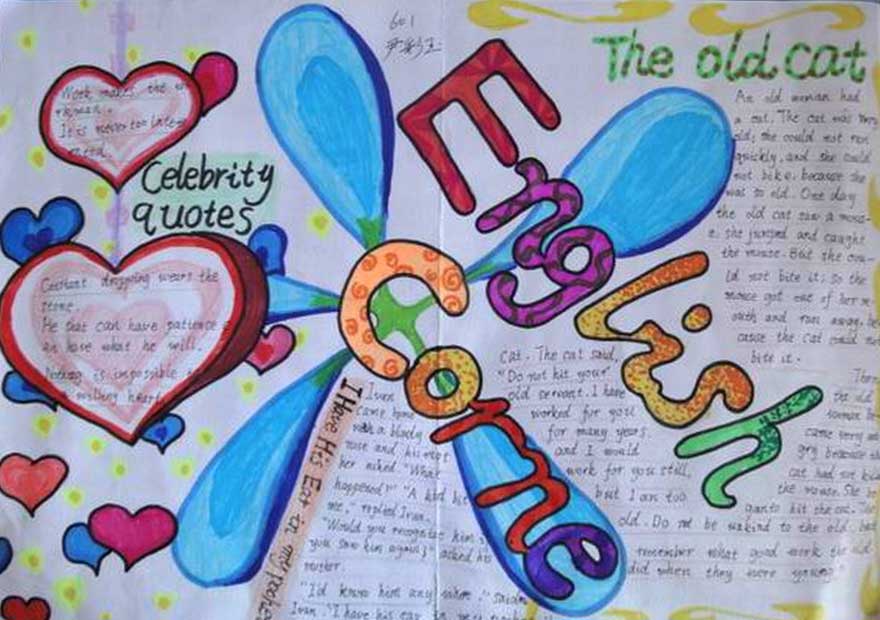 601
English
Corne
The old cat
An old woman had
a cat. The cat was very
old; she could not run
quickly, and she could
not bike, because she
was so old. One day
the old cat saw a mous-
e, she jumped and caught
the mouse. But the cou-
ld not bite it; so the
mouse got out of her m-
outh and run away, be-
cause the cat could not
bite it.
Then
the old
woman be-
came very an-
gry because
cat had not
the mouse. She
gan to hit the cat. The
cat. The cat said,
"Do not hit your
old servant. I have
worked for you
for many years.
and I would
work for you still,
but I am too
old. Do not be unkind to the old, but
remember what good work the old
did when they were young."
Celebrity
quotes
Work makes the
It is never too late
Constant dropping wears the
stone.
He that can have patience
an have what he will.
Nothing is impossible to
a willing heart.
I Have His Ear in my pocket
Ivan
came home
with a bloody
nose and his
her asked "What
happened?" "A kid bit
me," replied Ivan.
"Would you recognize him if
you saw him again?" asked his
mother.
"I'd know him any where," said
Ivan. "I have his ear in my